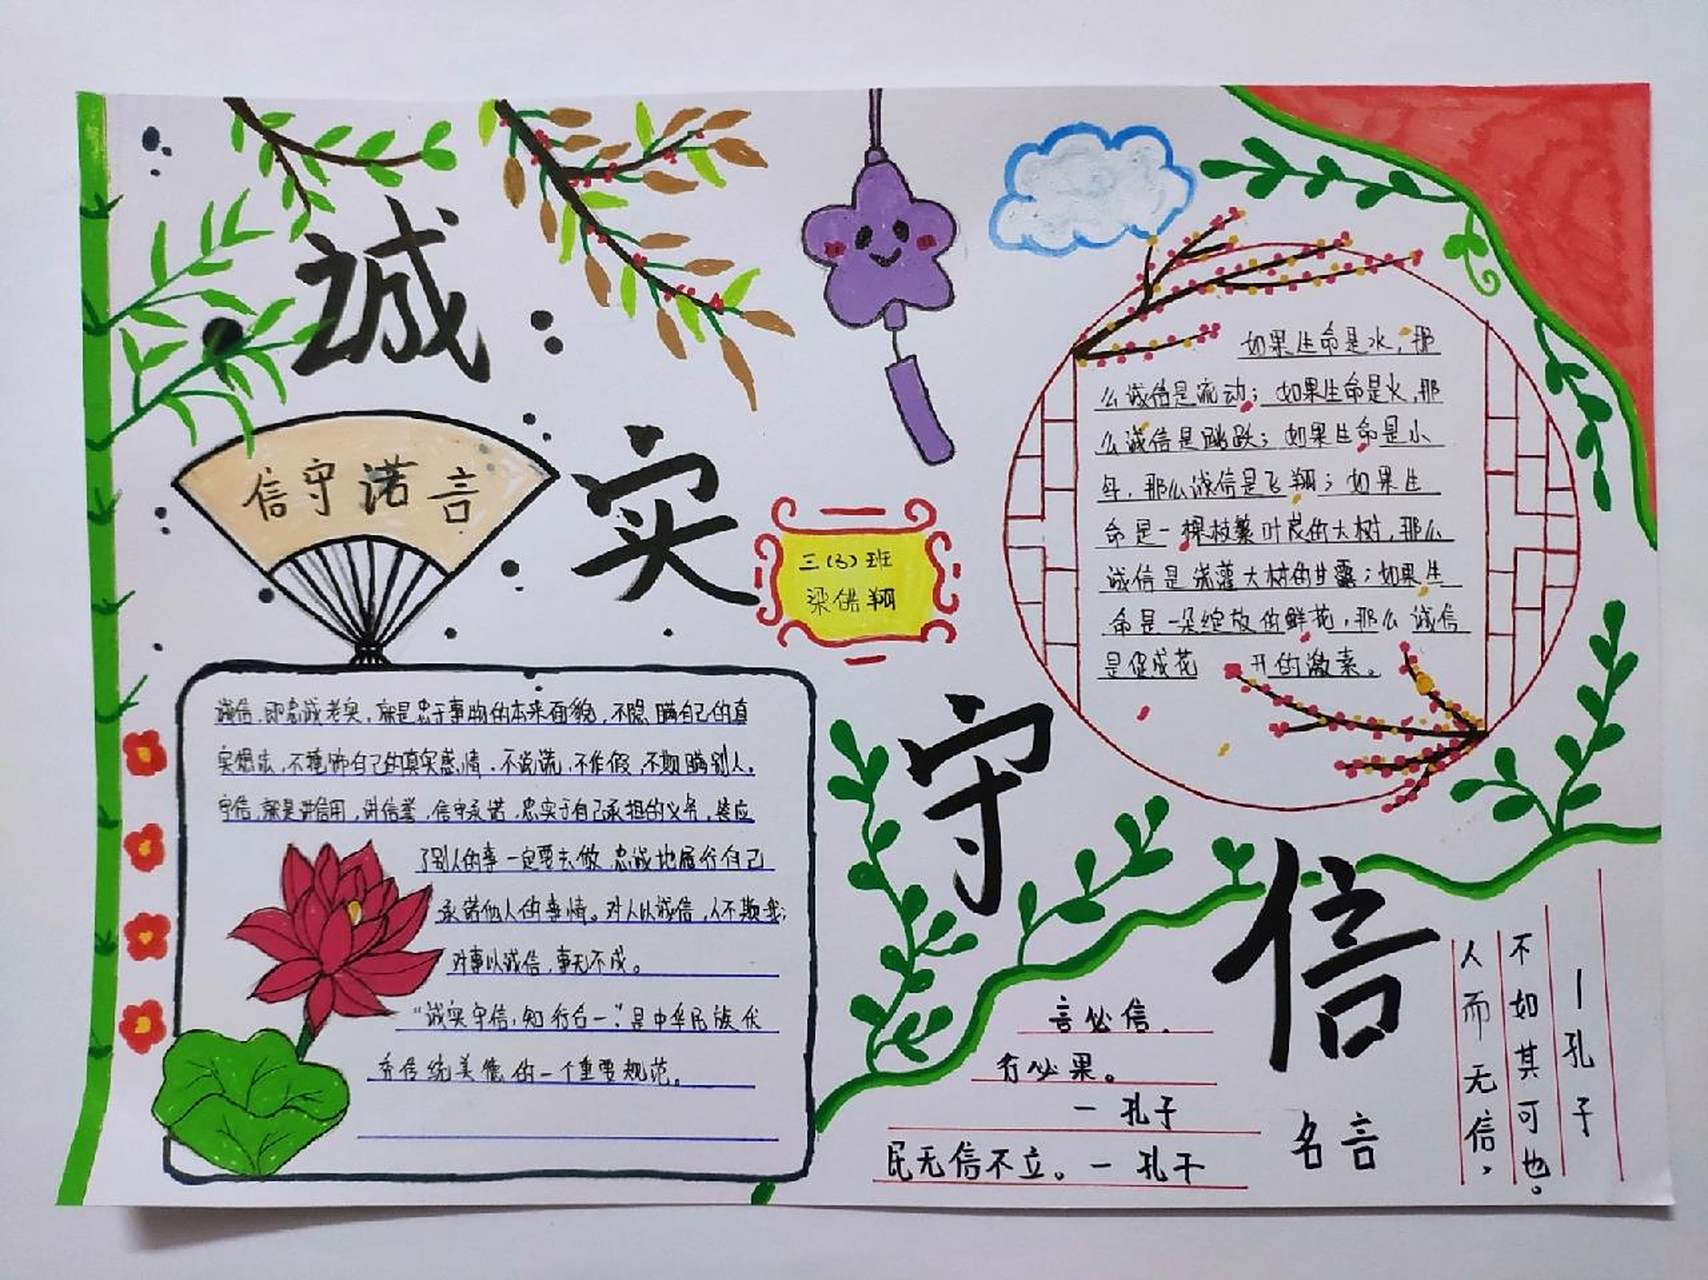 诚
实
守
信
信守诺言
三(3)班
梁皓翔
诚信,即忠诚老实,就是忠于事物的本来面貌,不隐瞒自己的真
实想法,不掩饰自己的真实感情,不说谎,不作假,不欺瞒别人。
守信,就是讲信用,讲信誉,信守承诺,忠实于自己承担的义务,答应
了别人的事一定要去做 忠诚地履行自己
承诺他人的事情。对人以诚信,人不欺我;
对事以诚信,事无不成。
“诚实守信,知行合一”是中华民族优
秀传统美德的一个重要规范。
如果生命是水,那
么诚信是流动;如果生命是火,那
么诚信是跳跃;如果生命是小
鸟,那么诚信是飞翔;如果生
命是一棵枝繁叶茂的大树,那么
诚信是浇灌大树的甘露;如果生
命是一朵绽放的鲜花,那么诚信
是促成花开的激素。
言必信,
行必果。
—孔子
民无信不立。—孔子
名言
人而无信,
不如其可也。
—孔子